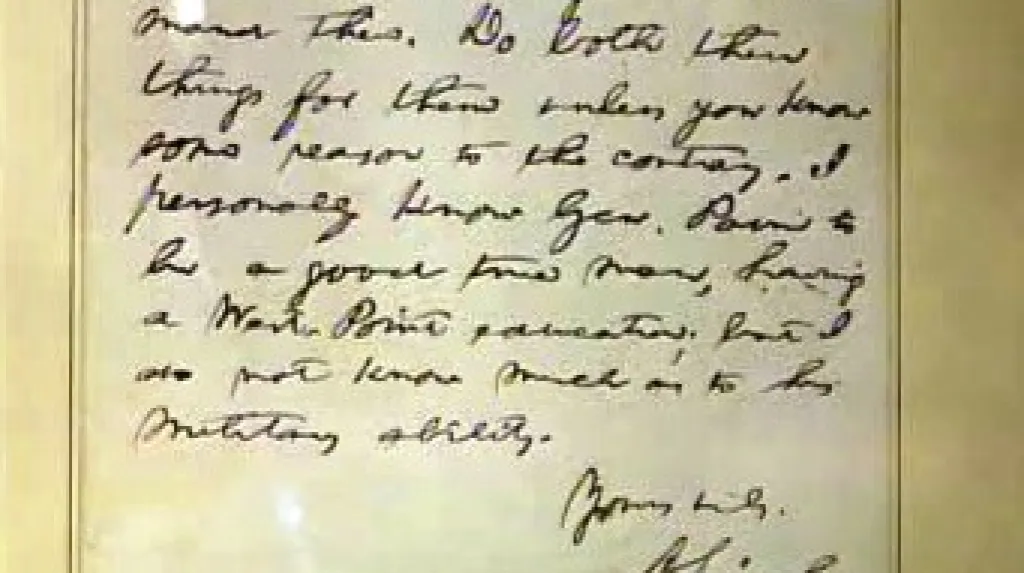 mand this. Do both these
things for them unless you know
some reason to the contrary. I
personally know Gen. Paine to
be a good true man, having
a West-Point education; but I
do not know much as to his
Military ability.
Yours truly.
A. Lincoln